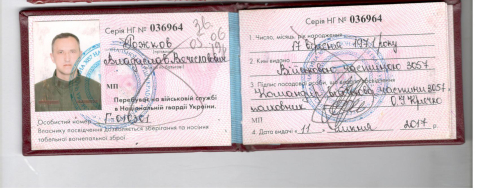 Серія НГ № 036964
Рожков
МП
Перебуває на військовій службі
в Національній гвардії України.
Особистий номер Г-010301
Власнику посвідчення дозволяється зберігання та носіння
табельної вогнепальної зброї.
Серія НГ № 036964
1. Число, місяць, рік народження
17 вересня 1971 року
2. Ким видано
Військовою частиною 3057
3. Підпис посадової особи
Командир військової частини 3057
полковник
МП
4. Дата видачі « 11 » липня 2017 р.